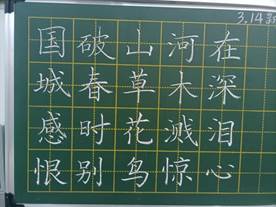 3.14
国破山河在
城春草木深
感时花溅泪
恨别鸟惊心